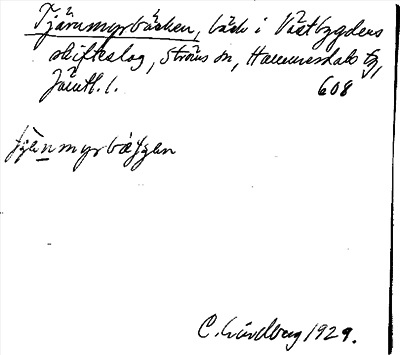 Tjärnmyrbäcken, bäck i Västbygdens
skifteslag, Ströms sn, Hammerdals tg,
Jämtl. l. 608
C. Lindberg 1929.